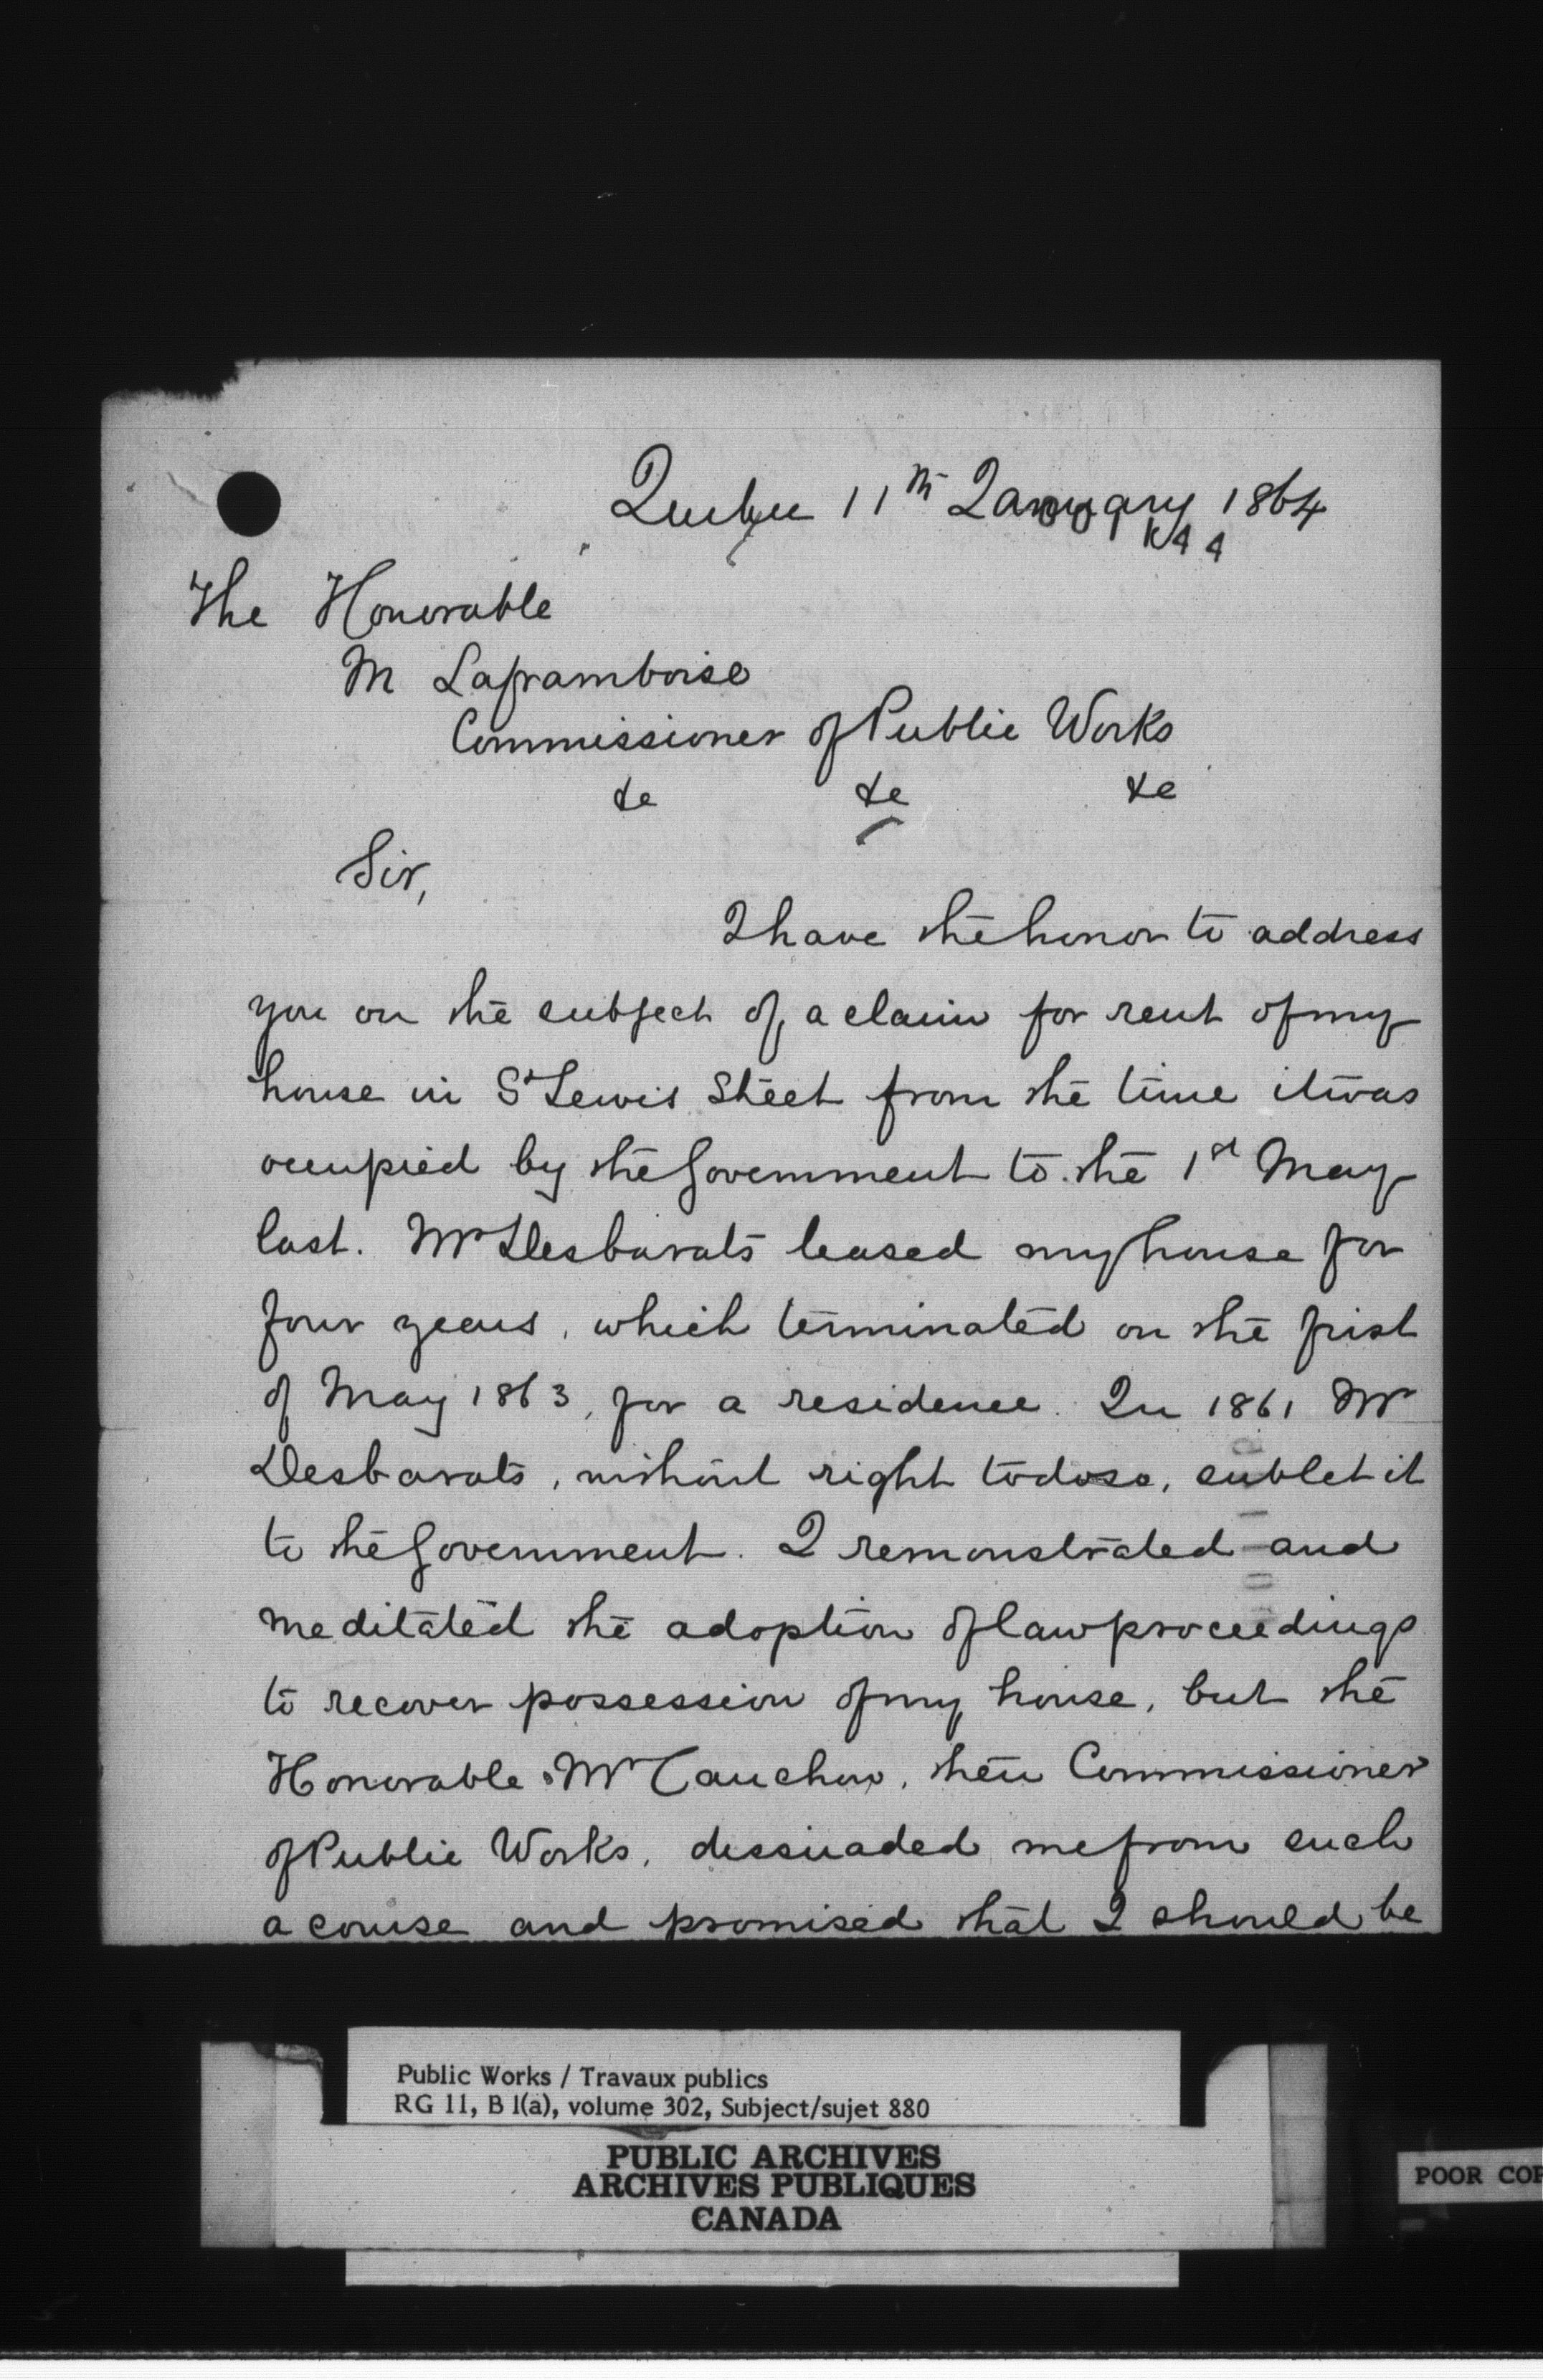 Quebec 11th January 1864
The Honorable
M Laframboise
Commissioner of Public Works
&c &c &c
Sir,
I have the honor to address
you on the subject of a claim for rent of my
house in St Lewis Street from the time it was
occupied by the Government to the 1st May
last. Mr Desbarats leased my house for
four years, which terminated on the first
of May 1863, for a residence. In 1861 Mr
Desbarats, without right to do so, sublet it
to the Government. I remonstrated and
meditated the adoption of law proceedings
to recover possession of my house, but the
Honorable Mr Cauchon, then Commissioner
of Public Works, dissuaded me from such
a course and promised that I should be
Public Works / Travaux publics
RG 11, B 1(a), volume 302, Subject/sujet 880
PUBLIC ARCHIVES
ARCHIVES PUBLIQUES
CANADA
POOR COP